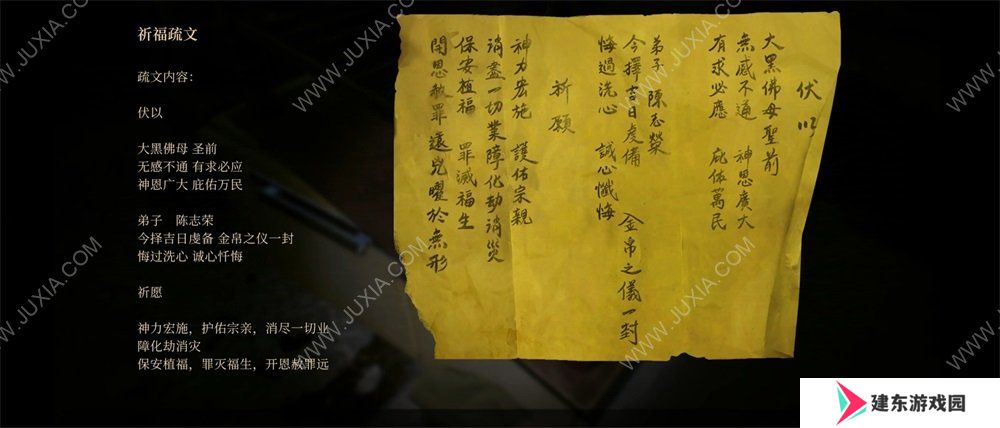 祈福疏文
疏文内容：
伏以
大黑佛母 圣前
无感不通 有求必应
神恩广大 庇佑万民
弟子　陈志荣
今择吉日虔备 金帛之仪一封
悔过洗心 诚心忏悔
祈愿
神力宏施，护佑宗亲，消尽一切业
障化劫消灾
保安植福，罪灭福生，开恩赦罪远
伏以
大黑佛母聖前
無感不通　神恩廣大
有求必應　庇佑萬民
弟子　陳志榮
今擇吉日虔備　金帛之儀一封
悔過洗心　誠心懺悔
祈願
神力宏施　護佑宗親
消盡一切業障化劫消災
保安植福　罪滅福生
開恩赦罪遠兇曜於無形
WWW.JUXIA.COM
WWW.JUXIA.COM
WWW.JUXIA.COM
WWW.JUXIA.COM
WWW.JUXIA.COM
WWW.JUXIA.COM
建东游戏园